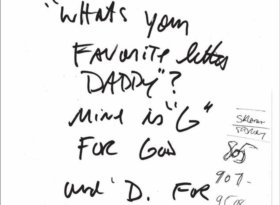 "What's your
FAVORITE letter
DADDY"?
Mine is "G"
FOR GOD
and 'D. FOR
805
907-